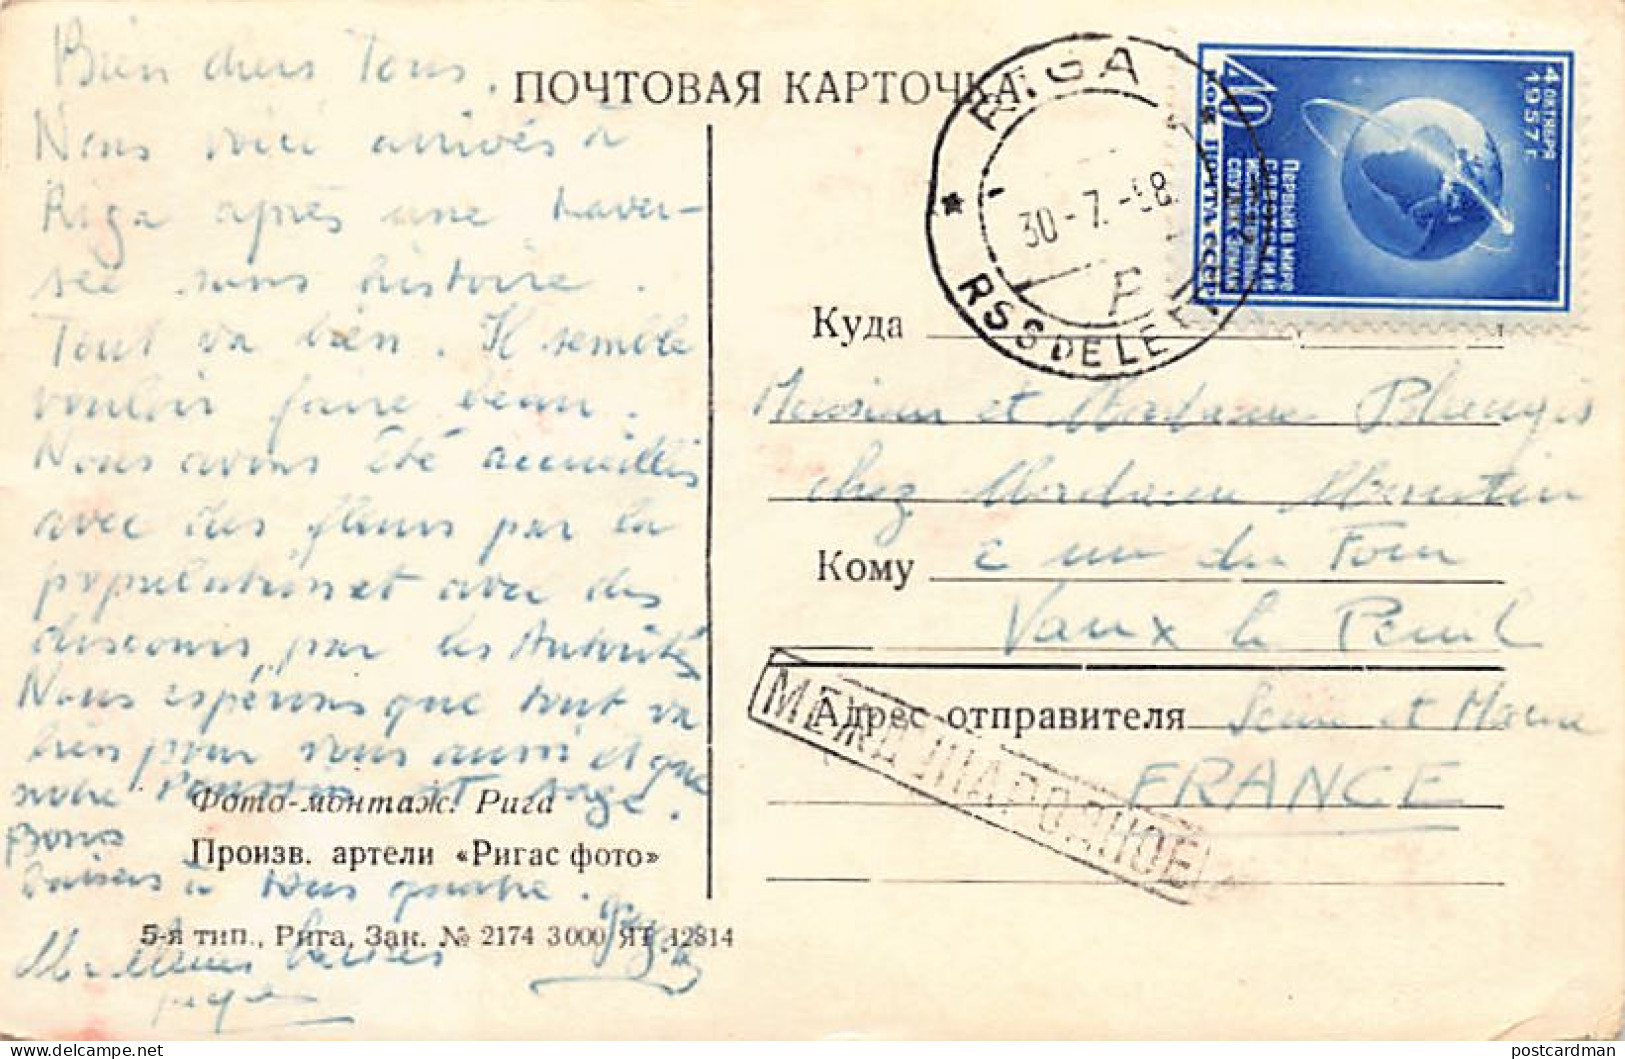 Bien chers Tous.
Nous voici arrivés à
Riga après une traver-
sée sans histoire.
Tout va bien. Il semble
vouloir faire beau.
Nous avons été accueillis
avec des fleurs par la
population et avec des
discours par les Autorités
Nous espérons que tout va
bien pour vous aussi et que
notre Poussin est sage.
Bons
baisers à tous quatre.
baisers
ПОЧТОВАЯ КАРТОЧКА
RIGA
30-7.-58
RSS DE LE
40
КОП ПОЧТА СССР
4 ОКТЯБРЯ
1957 г.
Первый в мире
советский
искусственный
спутник земли
Куда
Monsieur et Madame
chez Madame
Кому
rue du Four
Vaux le Penil
Адрес отправителя
Seine et Marne
FRANCE
МЕЖДУНАРОДНОЕ
Фото-монтаж. Рига
Произв. артели «Ригас фото»
5-я тип., Рига, Зак. № 2174 3000 ЯТ 12814
postcardman.net/delcampe.net
postcardman